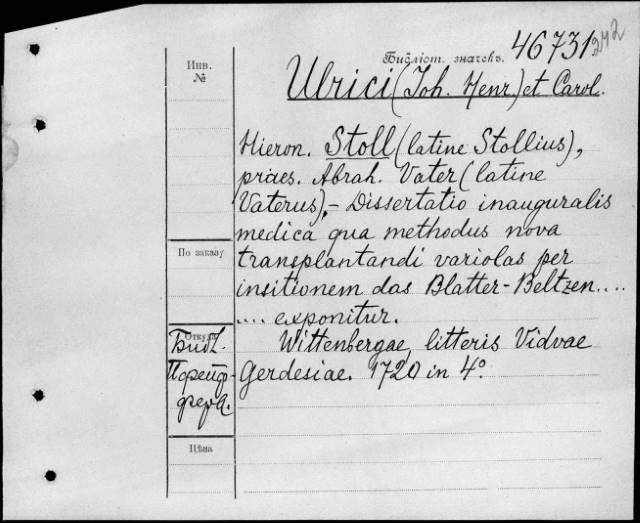 46731
242
Инв.
№
Библіот. значекъ.
Ulrici (Joh. Henr.) et Carol.
Hieron. Stoll (latine Stollius),
praes. Abrah. Vater (latine
Vaterus), - Dissertatio inauguralis
medica qua methodus nova
transplantandi variolas per
По заказу
insitionem das Blatter-Beltzen....
.... exponitur.
Откуда
Библ.
Wittenbergae, litteris Vidvae
Gerdesiae. 1720 in 4°.
Цѣна